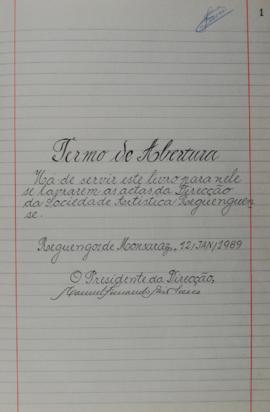 1
Termo de Abertura
Ha-de servir este livro para nele
se lavrarem as actas da Direcção
da Sociedade Artística Reguenguen
se.
Reguengos de Monsaraz, 12/JAN/1989
O Presidente da Direcção,
Manuel